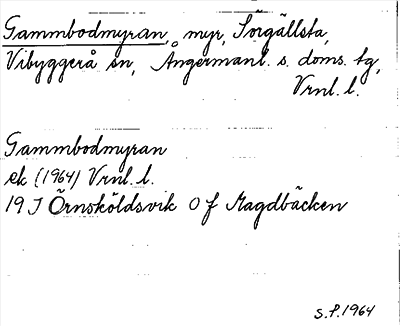 Gammbodmyran, myr, Sörgällsta,
Vibyggerå sn, Ångermanl. s. doms. tg,
Vrnl. l.
Gammbodmyran
ek (1964) Vrnl. l.
19 J Örnsköldsvik 0 f Magdbäcken
S.P. 1964